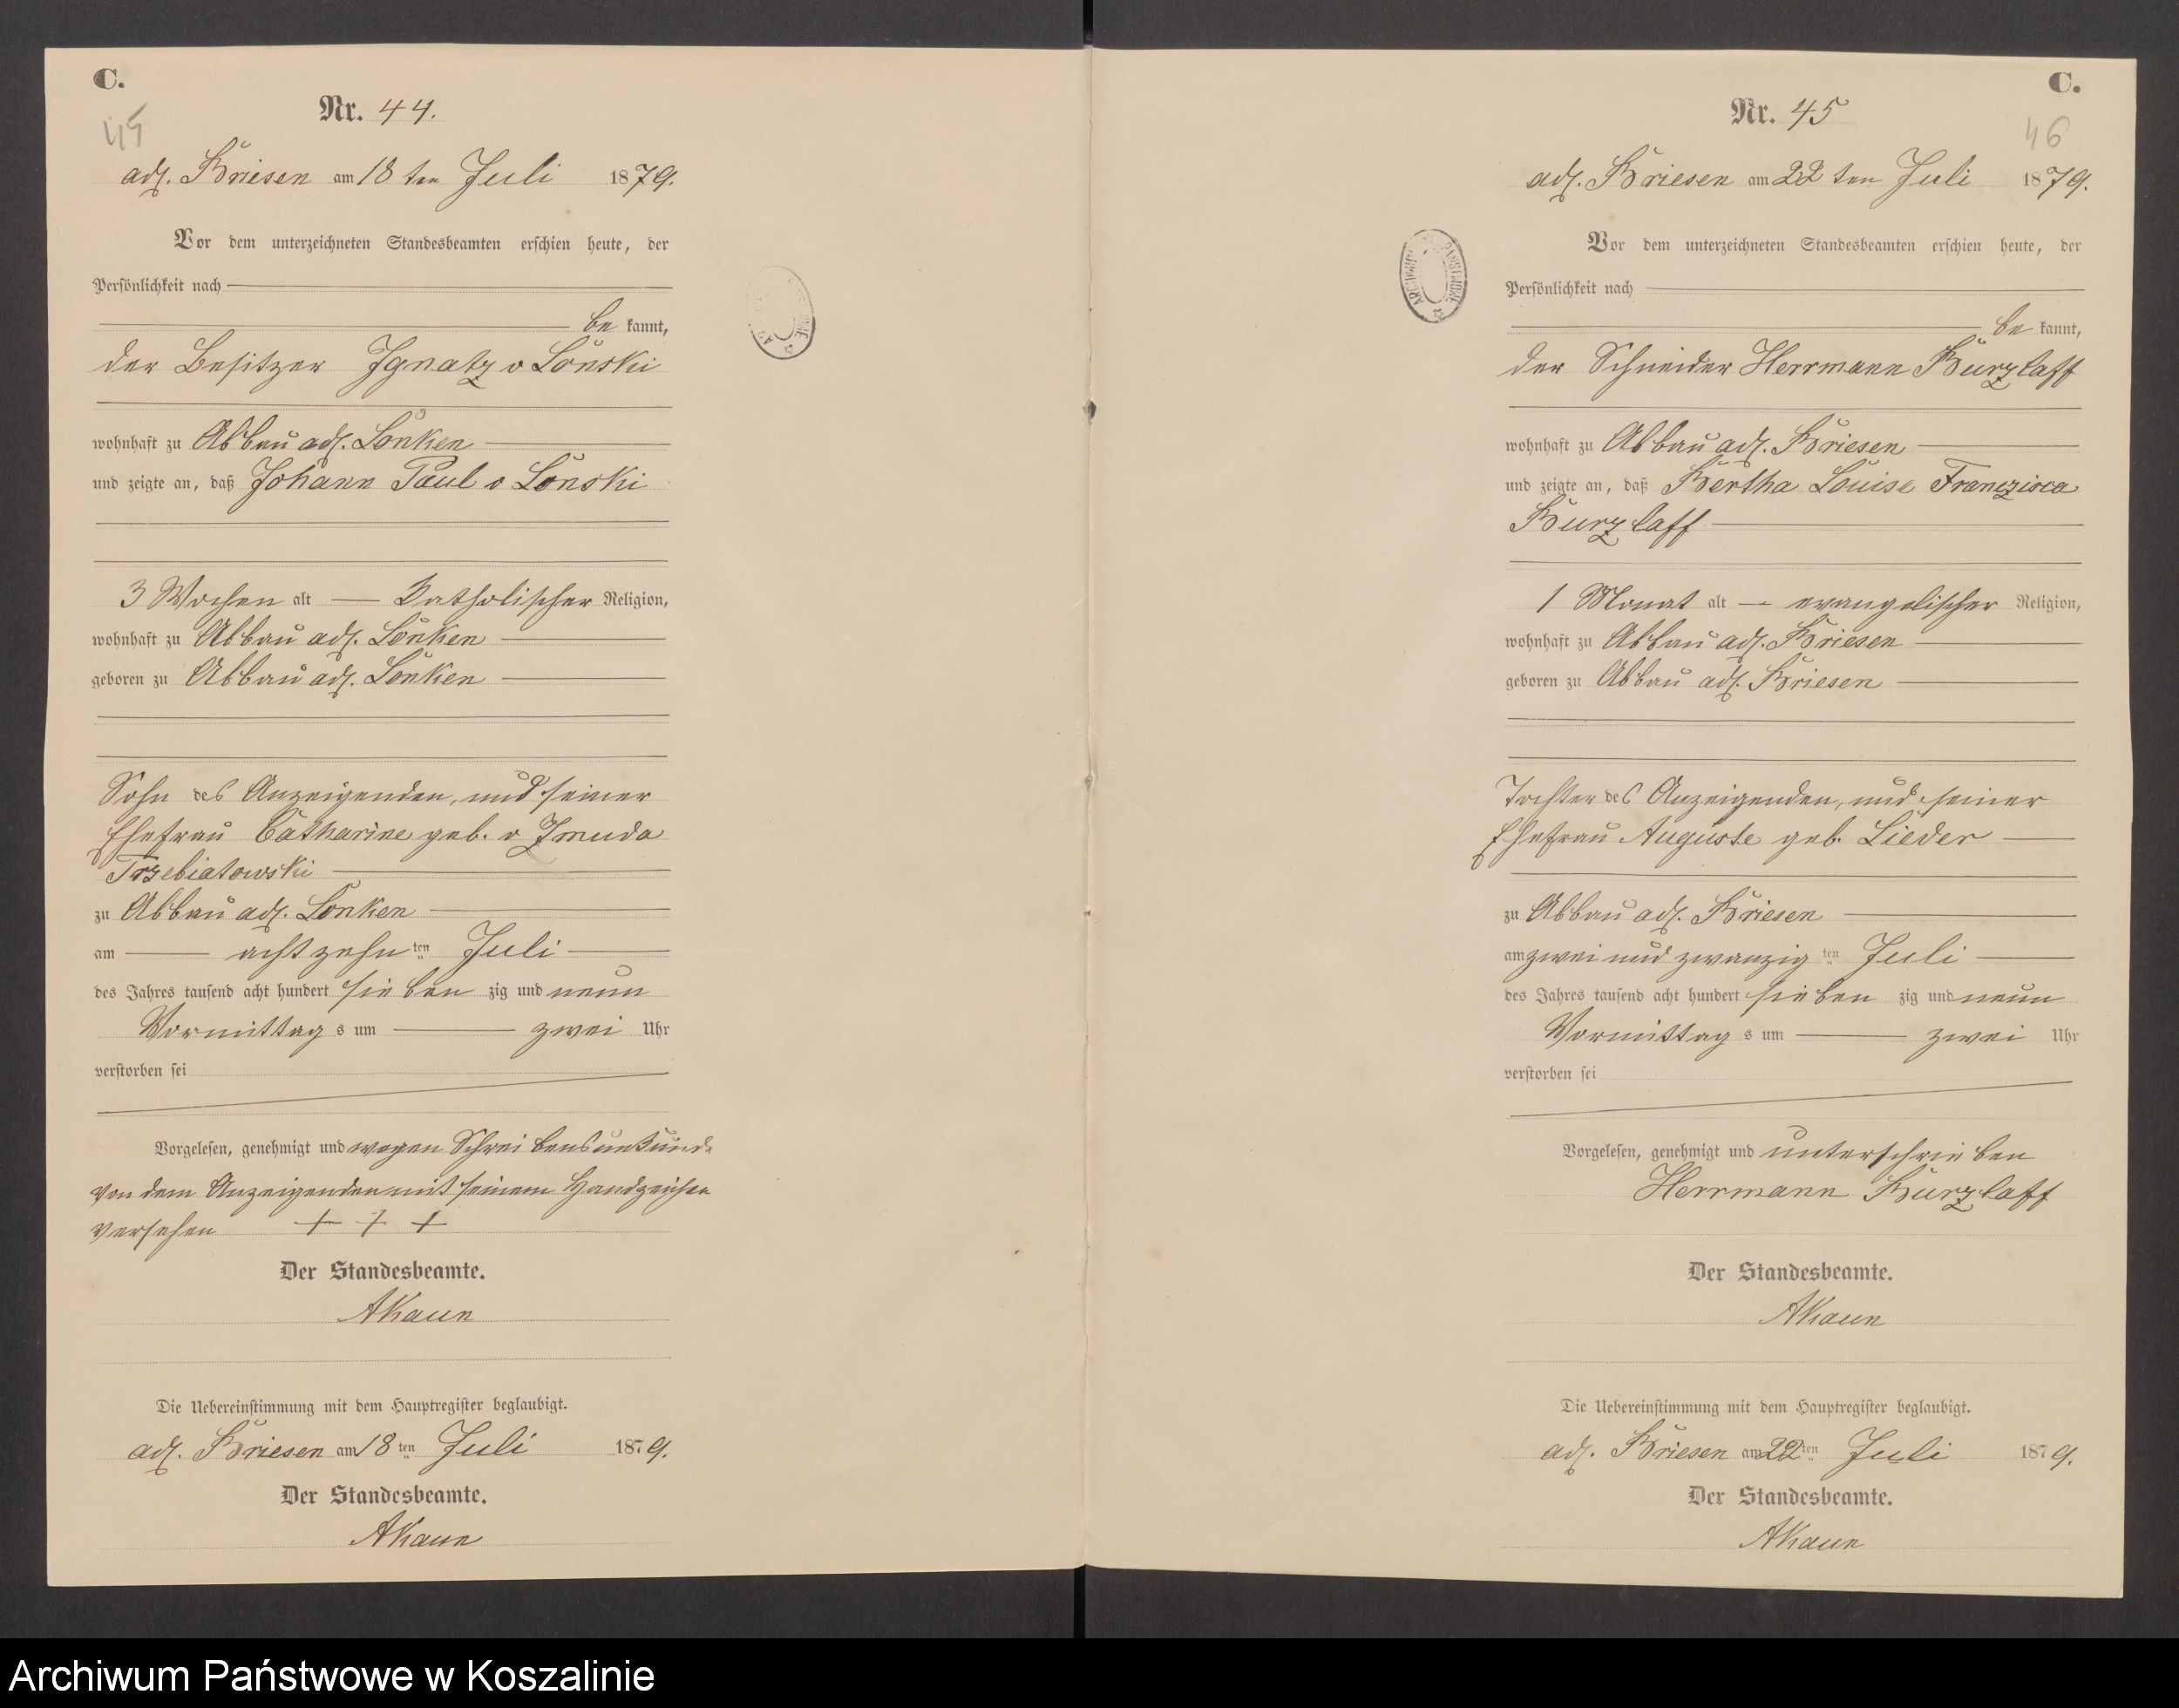 C.
Nr. 44.
45
adl. Briesen am 18 ten Juli 1879.
Vor dem unterzeichneten Standesbeamten erschien heute, der
Persönlichkeit nach
be kannt,
der Besitzer Ignatz v Lonski
wohnhaft zu Abbau adl. Lonken
und zeigte an, daß Johann Paul v Lonski
3 Wochen alt katholischer Religion,
wohnhaft zu Abbau adl. Lonken
geboren zu Abbau adl. Lonken
Sohn des Anzeigenden, und seiner
Ehefrau Catharine geb. v Zmuda
Trzebiatowski
zu Abbau adl. Lonken
am achtzehn ten Juli
des Jahres tausend acht hundert sieben zig und neun
Vormittag s um zwei Uhr
verstorben sei
Vorgelesen, genehmigt und wegen Schreibensunkunde
von dem Anzeigenden mit seinem Handzeichen
versehen + + +
Der Standesbeamte.
AKaun
Die Uebereinstimmung mit dem Hauptregister beglaubigt.
adl. Briesen am 18 ten Juli 1879.
Der Standesbeamte.
AKaun
C.
Nr. 45
46
adl. Briesen am 22 ten Juli 1879.
ARCHIWUM PAŃSTWOWE
Vor dem unterzeichneten Standesbeamten erschien heute, der
Persönlichkeit nach
be kannt,
der Schneider Herrmann Burzlaff
wohnhaft zu Abbau adl. Briesen
und zeigte an, daß Bertha Louise Franczisca
Burzlaff
1 Monat alt evangelischer Religion,
wohnhaft zu Abbau adl. Briesen
geboren zu Abbau adl. Briesen
Tochter des Anzeigenden, und seiner
Ehefrau Auguste geb. Lieder
zu Abbau adl. Briesen
am zwei und zwanzig ten Juli
des Jahres tausend acht hundert sieben zig und neun
Vormittag s um zwei Uhr
verstorben sei
Vorgelesen, genehmigt und unterschrieben
Herrmann Burzlaff
Der Standesbeamte.
AKaun
Die Uebereinstimmung mit dem Hauptregister beglaubigt.
adl. Briesen am 22 ten Juli 1879.
Der Standesbeamte.
AKaun
Archiwum Państwowe w Koszalinie